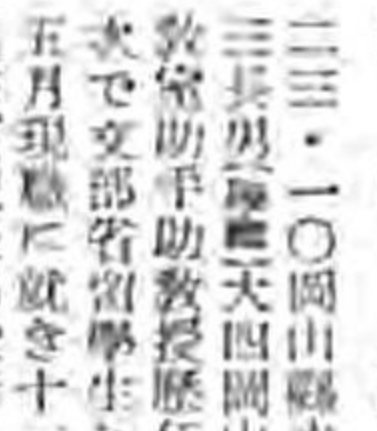 二三・一〇岡山縣
三長男大四岡山
敎室助手助敎授歷
次で文部省留學生
五月現職に就き十